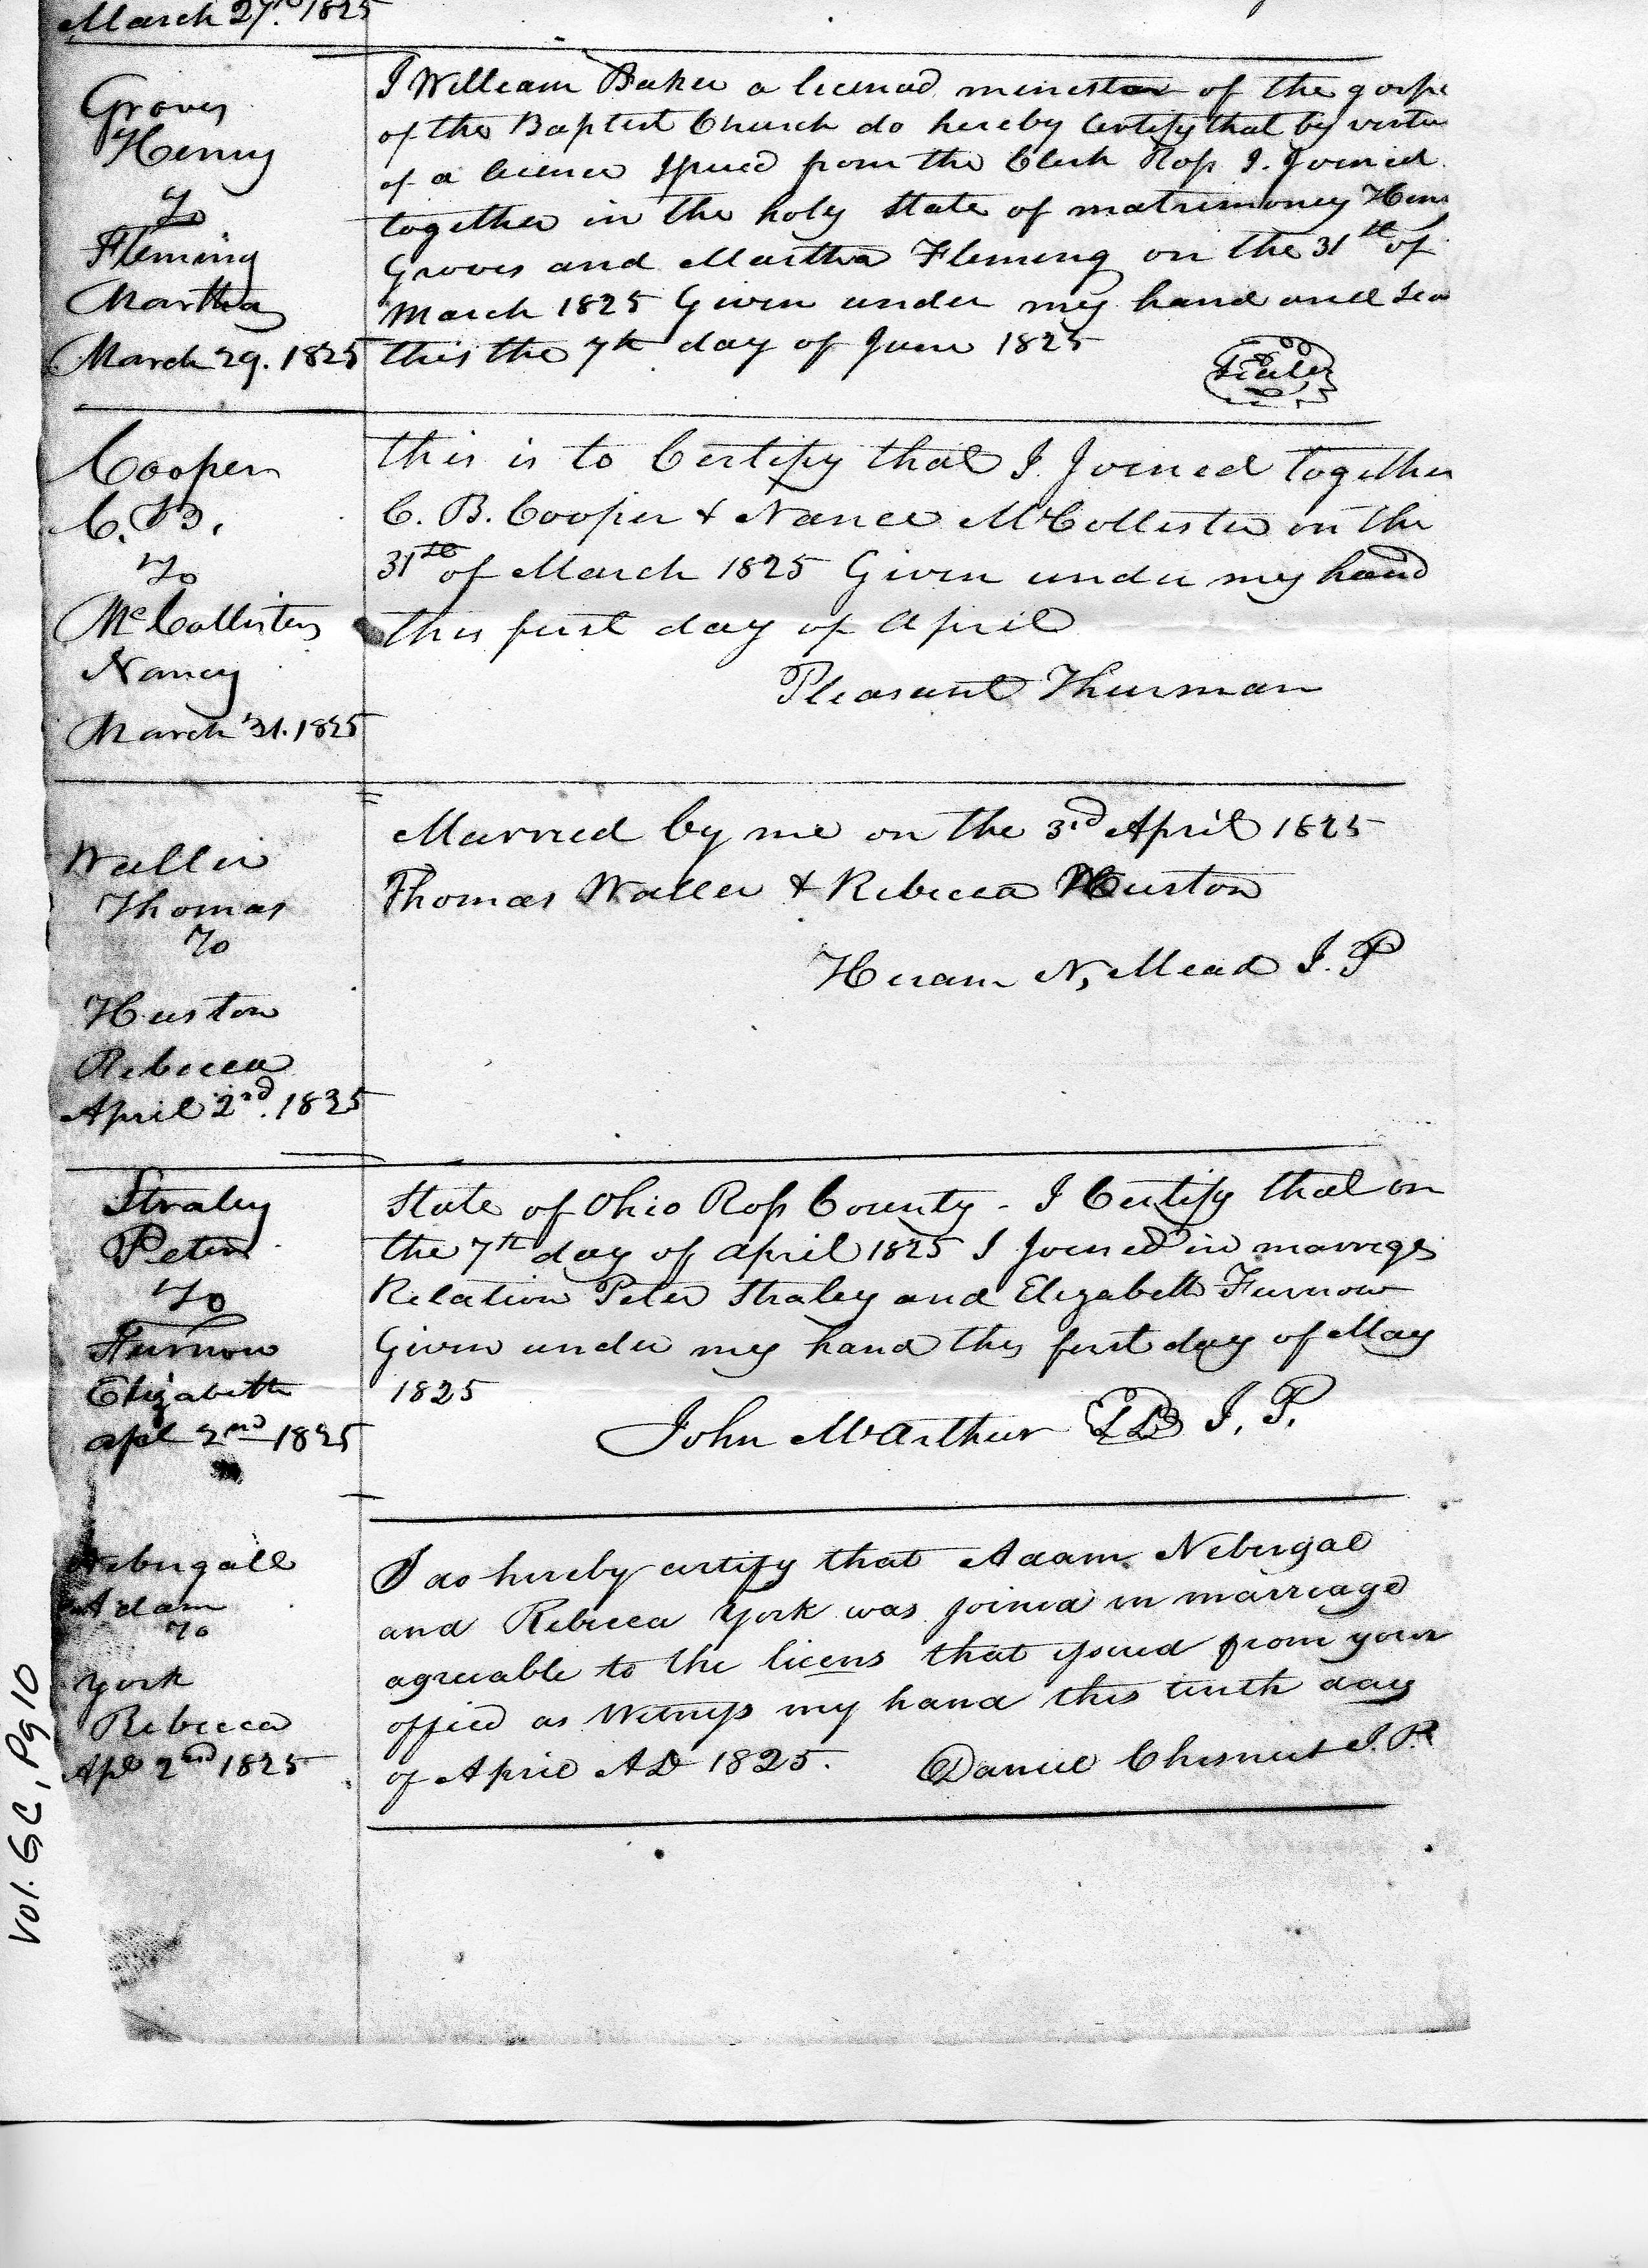 March 27th 1825
Groves
Henry
To
Fleming
Martha
March 29. 1825
I William Baker a licensd minester of the gospe
of the Baptest Church do hereby Certify that by virtu
of a licence Issued from the Clerk Ross I. Joined
together in the holy state of matrimoney Hen
Groves and Martha Fleming on the 31th of
March 1825 Given under my hand and sea
this the 7th day of June 1825
Seale
Cooper
C. B.
To
McCollister
Nancy
March 31. 1825
this is to Certify that I Joined together
C. B. Cooper & Nance McCollester on the
31th of March 1825 Given under my hand
this first day of april
Pleasant Thurman
Waller
Thomas
To
Huston
Rebecca
April 2nd. 1825
Married by me on the 3rd April 1825
Thomas Waller & Rebecca Huston
Hiram N, Mead J. P
Straley
Peter
To
Furnow
Elizabeth
apl 2nd 1825
State of Ohio Ross County - I Certify that on
the 7th day of april 1825 I Joined in marrege
Relation Peter Straley and Elizabeth Furnow
Given under my hand this first day of May
1825
John McArthur J. P.
Nebugall
Adam
To
York
Rebecca
Apl 2nd 1825
I do hereby certify that Adam Nebugal
and Rebecca York was joined in marreage
agreeable to the licens that issued from your
office as Witness my hand this tenth day
of April AD 1825. Daniel Chesnut J. P.
Vol. GC, Pg 10